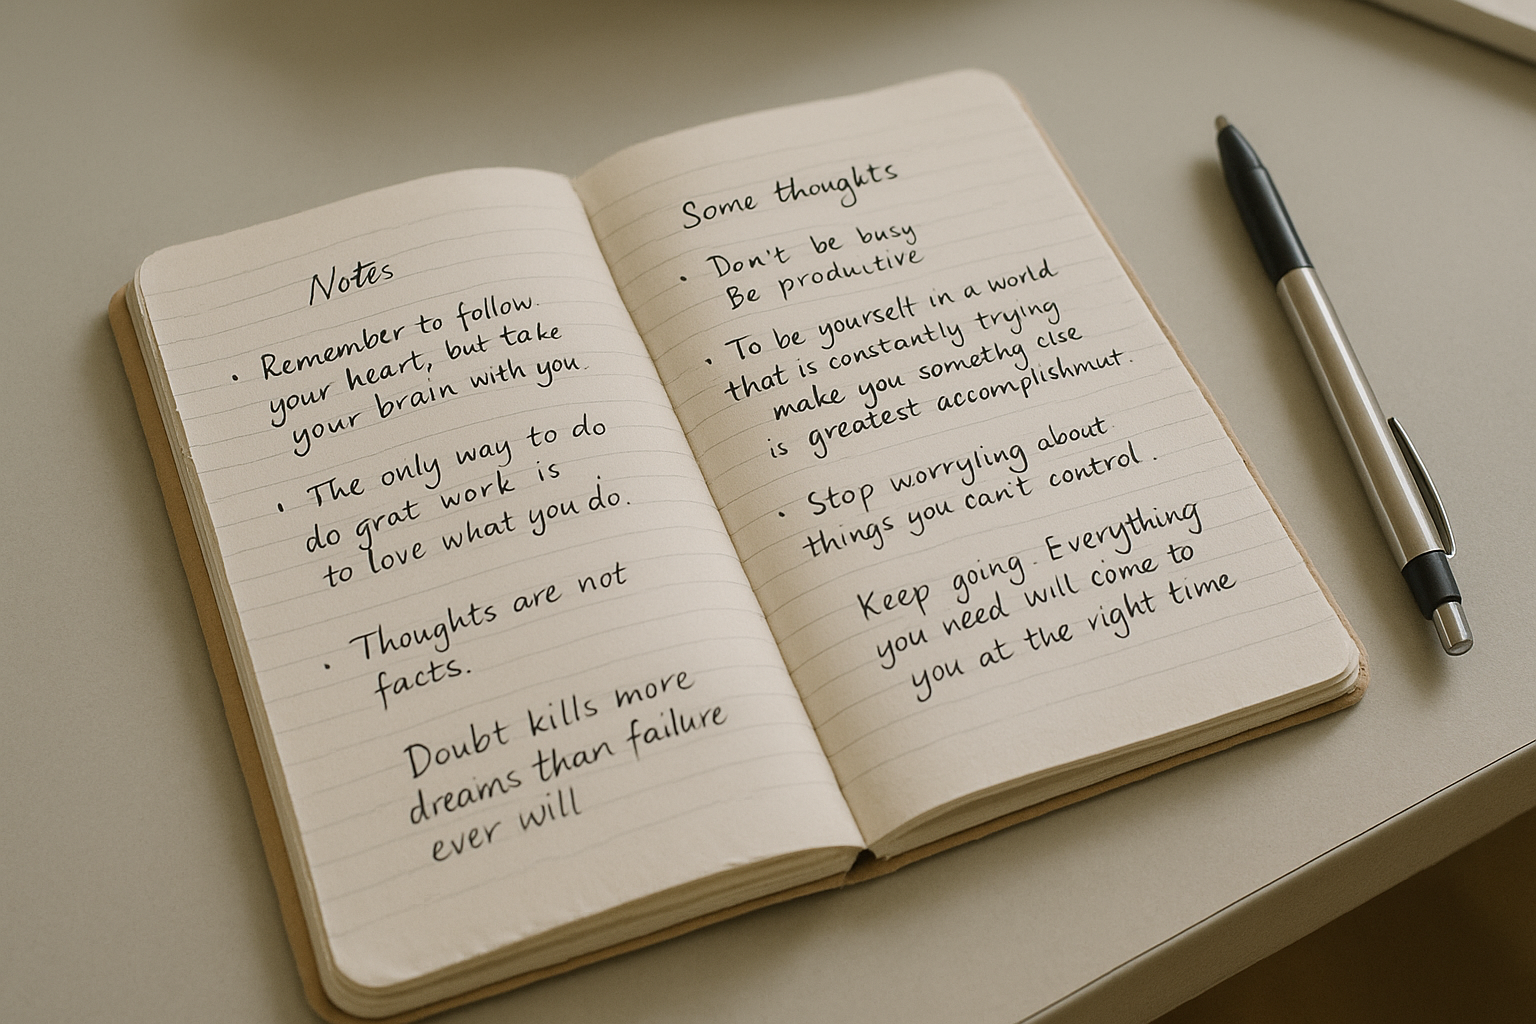 Notes
• Remember to follow.
your heart, but take
your brain with you.
• The only way to do
do grat work is
to love what you do.
• Thoughts are not
facts.
Doubt kills more
dreams than failure
ever will
Some thoughts
• Don't be busy
Be productive
• To be yourself in a world
that is constantly trying
make you somethg clse
is greatest accomplishmut.
• Stop worryling about
things you can't control.
Keep going. Everything
you need will come to
you at the right time